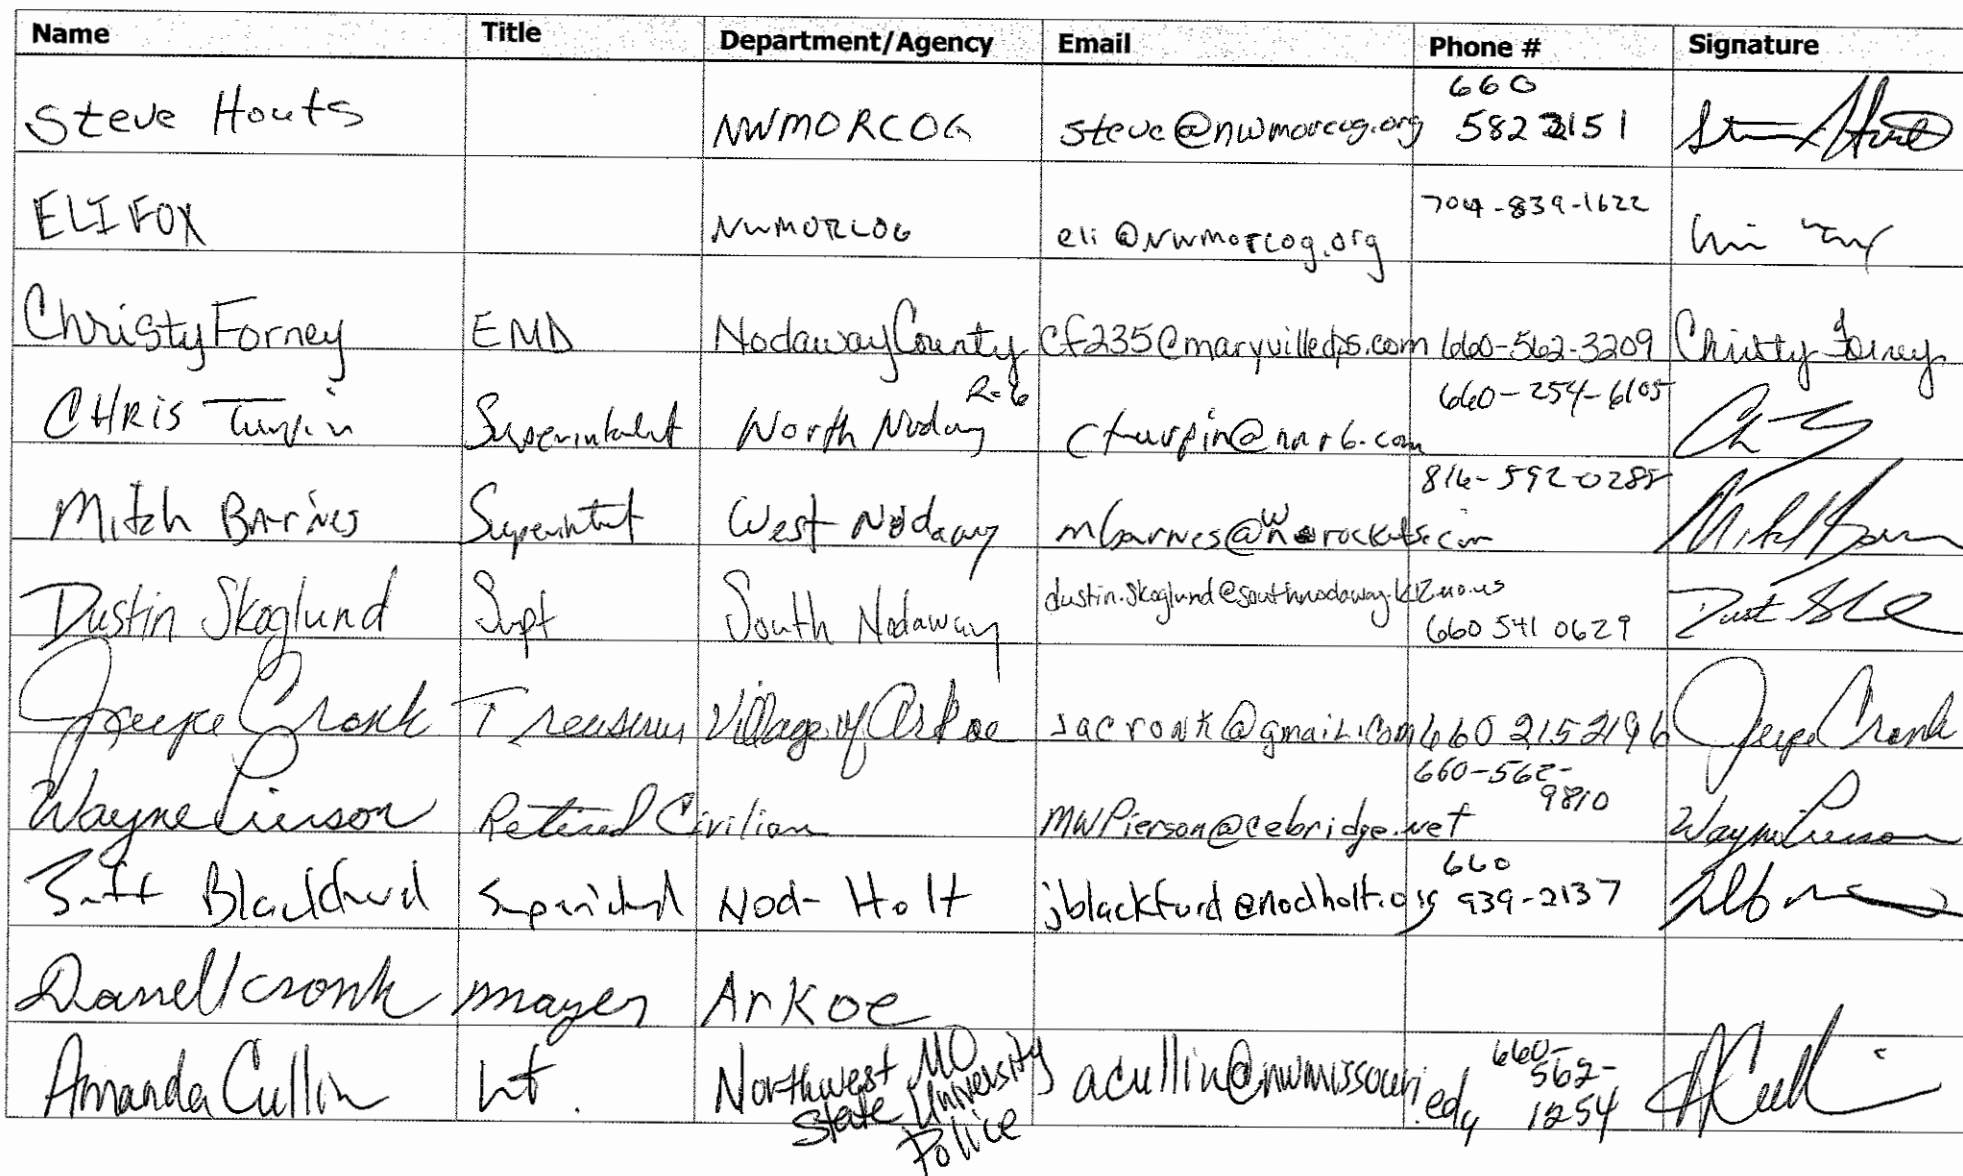 Name Title Department/Agency Email Phone # Signature
Steve Houts NWMORCOG steve@nwmorcog.org 660 582 2151
ELI FOX NWMORCOG eli@nwmorcog.org 704-839-1622
Christy Forney EMD Nodaway County cf235@maryvilledps.com 660-562-3209 Christy Forney
CHRIS Turpin Superintendent North Nodaway R-6 cturpin@nnr6.com 660-254-6105
Mitch Barnes Superintendent West Nodaway mbarnes@wnrockets.com 816-592-0288
Dustin Skoglund Supt South Nodaway dustin.skoglund@southnodaway.k12.mo.us 660 541 0629
Joyce Cronk Treasurer Village of Arkoe jacronk@gmail.com 660 215 2196 Joyce Cronk
Wayne Pierson Retired Civilian MWPierson@cebridge.net 660-562-
9810 Wayne Pierson
Blackford Superintendent Nod-Holt jblackford@nodholt.org 660 939-2137
Darrell Cronk mayor Arkoe
Amanda Cullin Lt. Northwest MO
State University
Police acullin@nwmissouri
.edu 660-
562-
1254